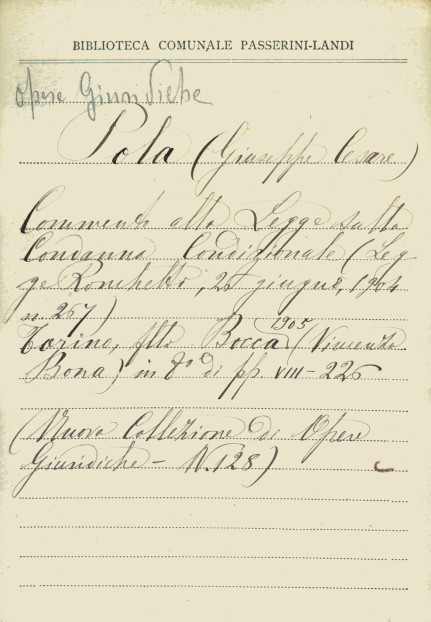 BIBLIOTECA COMUNALE PASSERINI-LANDI
Opere Giuridiche
Pola (Giuseppe Cesare)
Commento alla Legge sulla
Condanna Condizionale (Leg-
ge Ronchetti, 26 giugno, 1904
n. 267)
Torino, flli Bocca 1905 (Vincenzo
Bona) in 8° di pp. VIII-226
(Nuova Collezione di Opere
Giuridiche - N. 128)